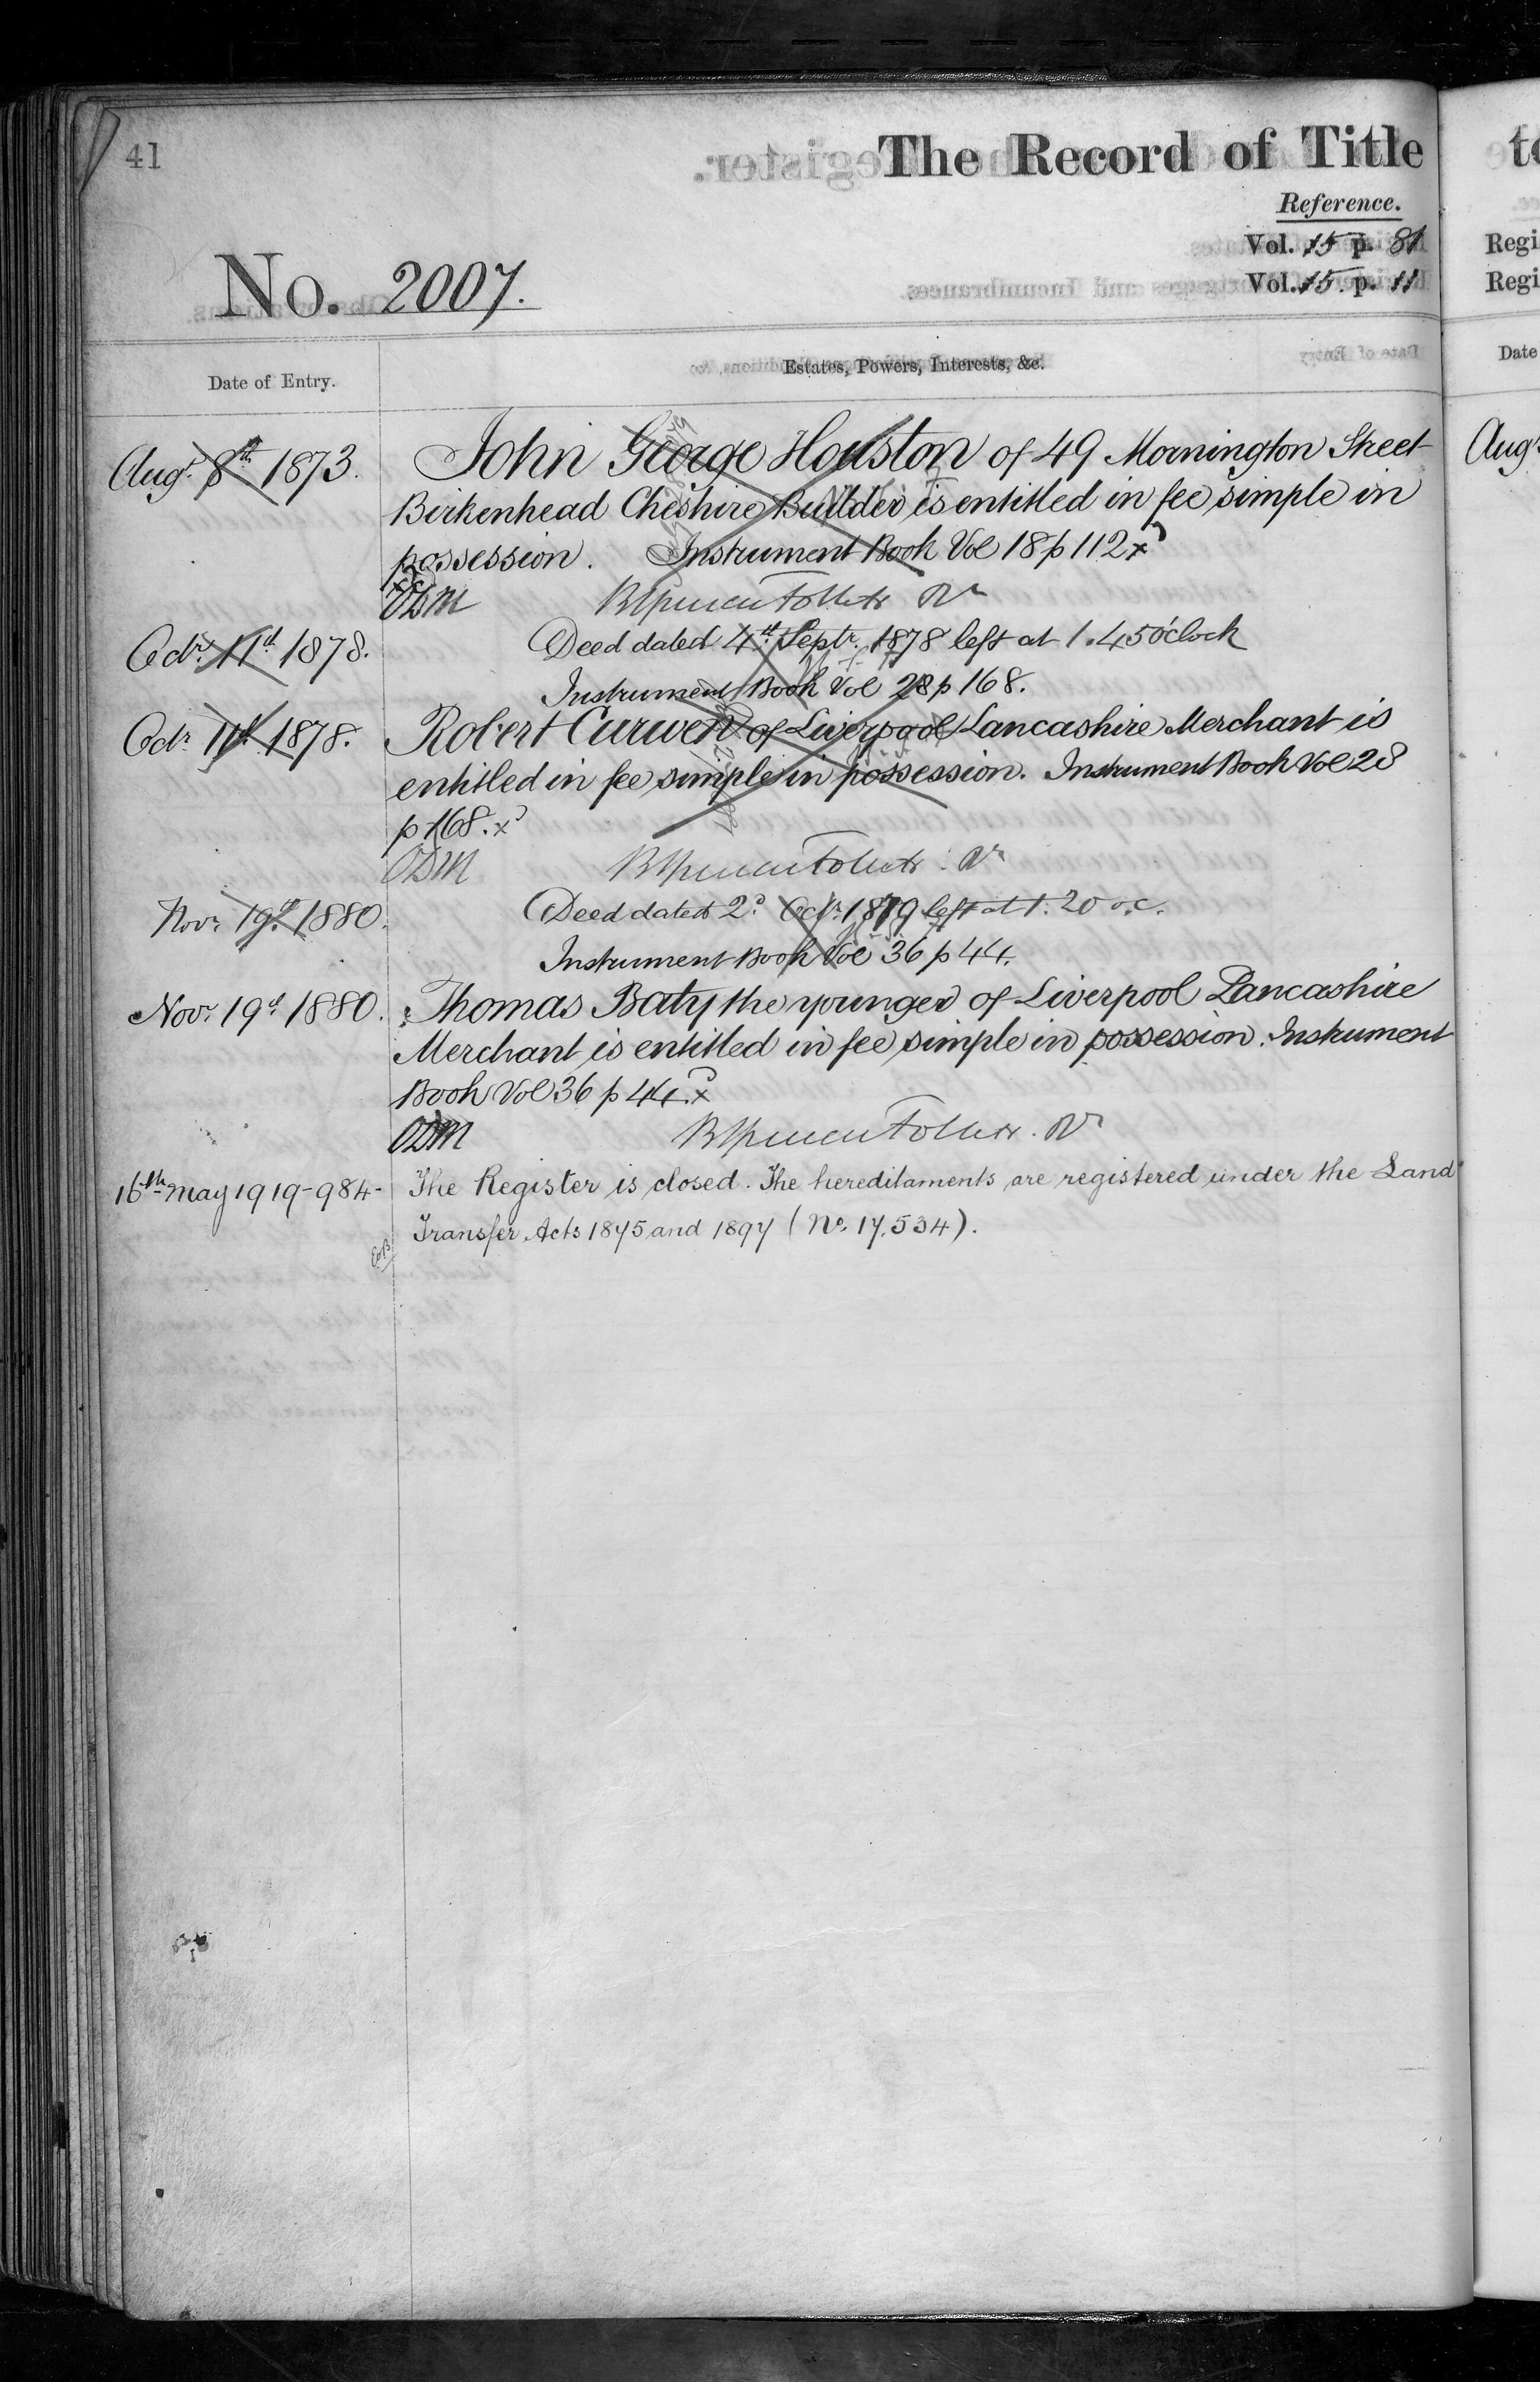 41
The Record of Title
Reference.
Vol. 15 p. 81
Vol. 15. p. 11
No. 2007.
Date of Entry.
Estates, Powers, Interests, &c.
Augt. 8th 1873.
John George Houston of 49 Mornington Street
Birkenhead Cheshire Builder is entitled in fee simple in
possession. Instrument Book Vol 18 p 112 x
ODM
Octr. 11th 1878.
Deed dated 4th Septr. 1878 left at 1.45 o'clock
Instrument Book Vol 28 p 168.
Octr. 11th 1878.
Robert Curwen of Liverpool Lancashire Merchant is
entitled in fee simple in possession. Instrument Book Vol 28
p 168. x
ODM
Novr. 19th 1880.
Deed dated 2d Octr. 1879 left at 1.20 o.c.
Instrument Book Vol 36 p 44.
Novr. 19th 1880.
Thomas Baty the younger of Liverpool Lancashire
Merchant is entitled in fee simple in possession. Instrument
Book Vol 36 p 44. x
ODM
16th May 1919-984-
The Register is closed. The hereditaments are registered under the Land
Transfer Acts 1875 and 1897 (No. 17,534).
to
Regi
Regi
Date
Augt